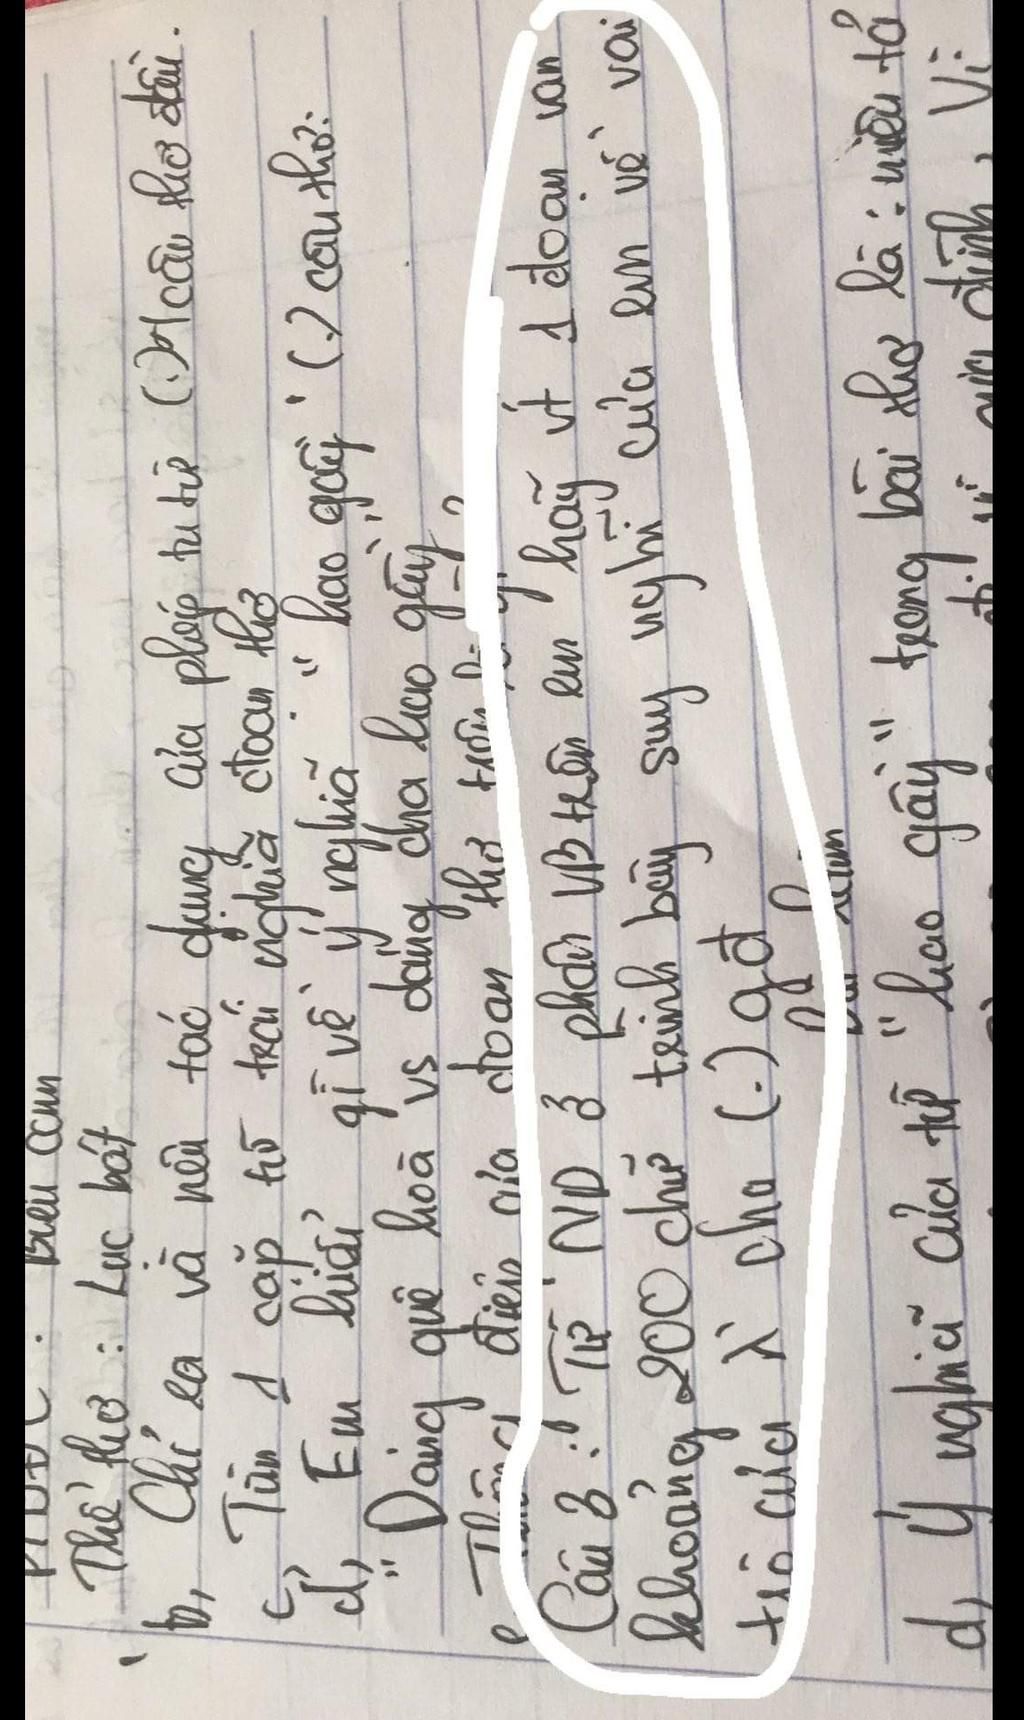 PTBĐC: Biểu cảm
Thể thơ: Lục bát
b, Chỉ ra và nêu tác dụng của phép tu từ (.) 4 câu thơ đầu.
c, Tìm 1 cặp từ trái nghĩa đoạn thơ
d, Em hiểu gì về ý nghĩa "hao gầy" (.) câu thơ:
"Dáng quê hoà vs dáng cha hao gầy"
điệp của đoạn thơ trên
Câu 3: Từ ND ở phần VB trên em hãy vt 1 đoạn văn
khoảng 200 chữ trình bày suy nghĩ của em về vai
trò của cha (.) gđ
d, Ý nghĩa của từ "hao gầy" trong bài thơ là: miêu tả
gia đình, Vì